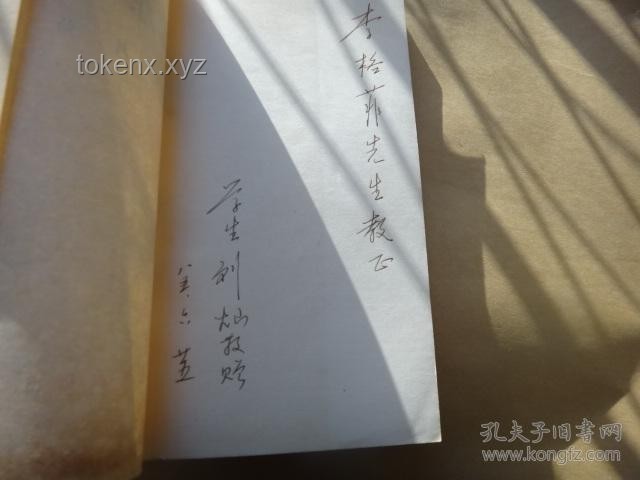 李格菲先生教正
学生刘灿敬赠
八五、六
tokenx.xyz
孔夫子旧书网
www.kongfz.com